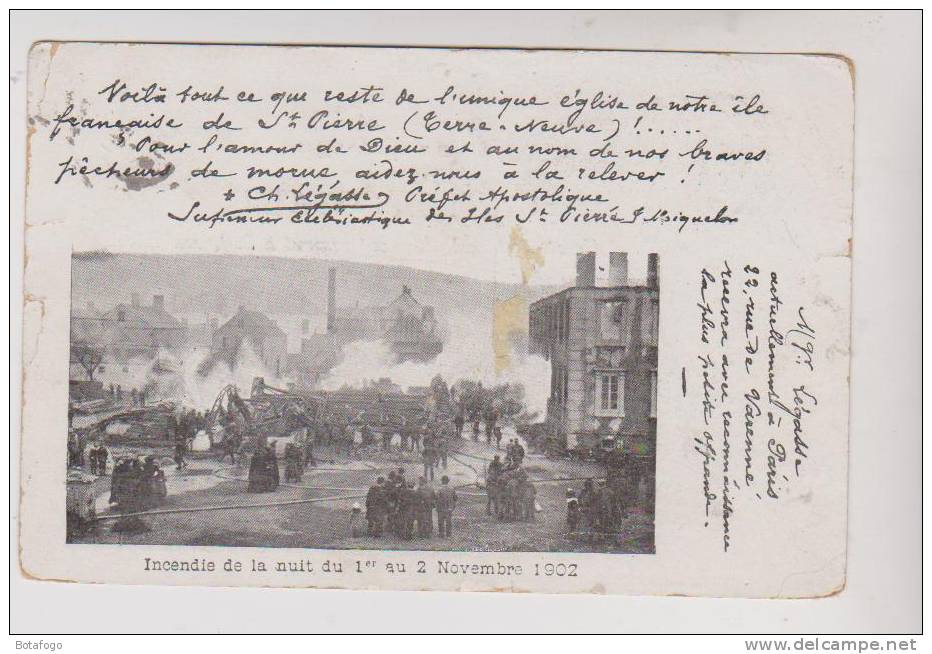 Voilà tout ce que reste de l'unique église de notre île
française de St Pierre (Terre-Neuve) !......
Pour l'amour de Dieu et au nom de nos braves
pêcheurs de morue, aidez-nous à la relever !
* Ch. Légasse Préfet Apostolique
Supérieur Ecclésiastique des Iles St Pierre & Miquelon
Mgr. Légasse
actuellement à Paris
22, rue de Varenne
recevra avec reconnaissance
la plus petite offrande.-
Incendie de la nuit du 1er au 2 Novembre 1902
Botafogo
http://www.delcampe.net